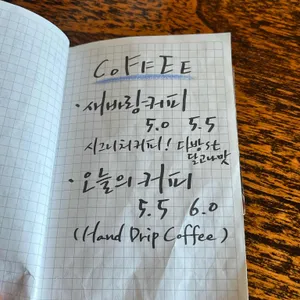 COFFEE
· 새바랑커피
5.0 5.5
시그니처커피! 다방st
달고나맛
· 오늘의 커피
5.5 6.0
(Hand Drip Coffee)